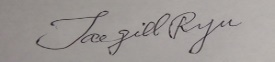 Jaegill Ryu